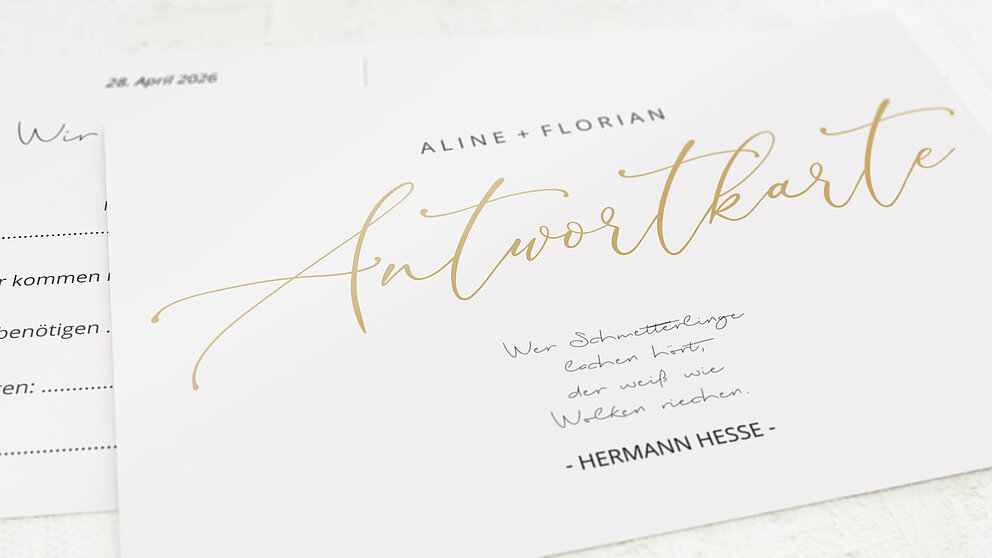 28. April 2026
Wir
kommen
benötigen .
en: ..............
ALINE + FLORIAN
Antwortkarte
Wer Schmetterlinge
lachen hört,
der weiß wie
Wolken riechen.
- HERMANN HESSE -